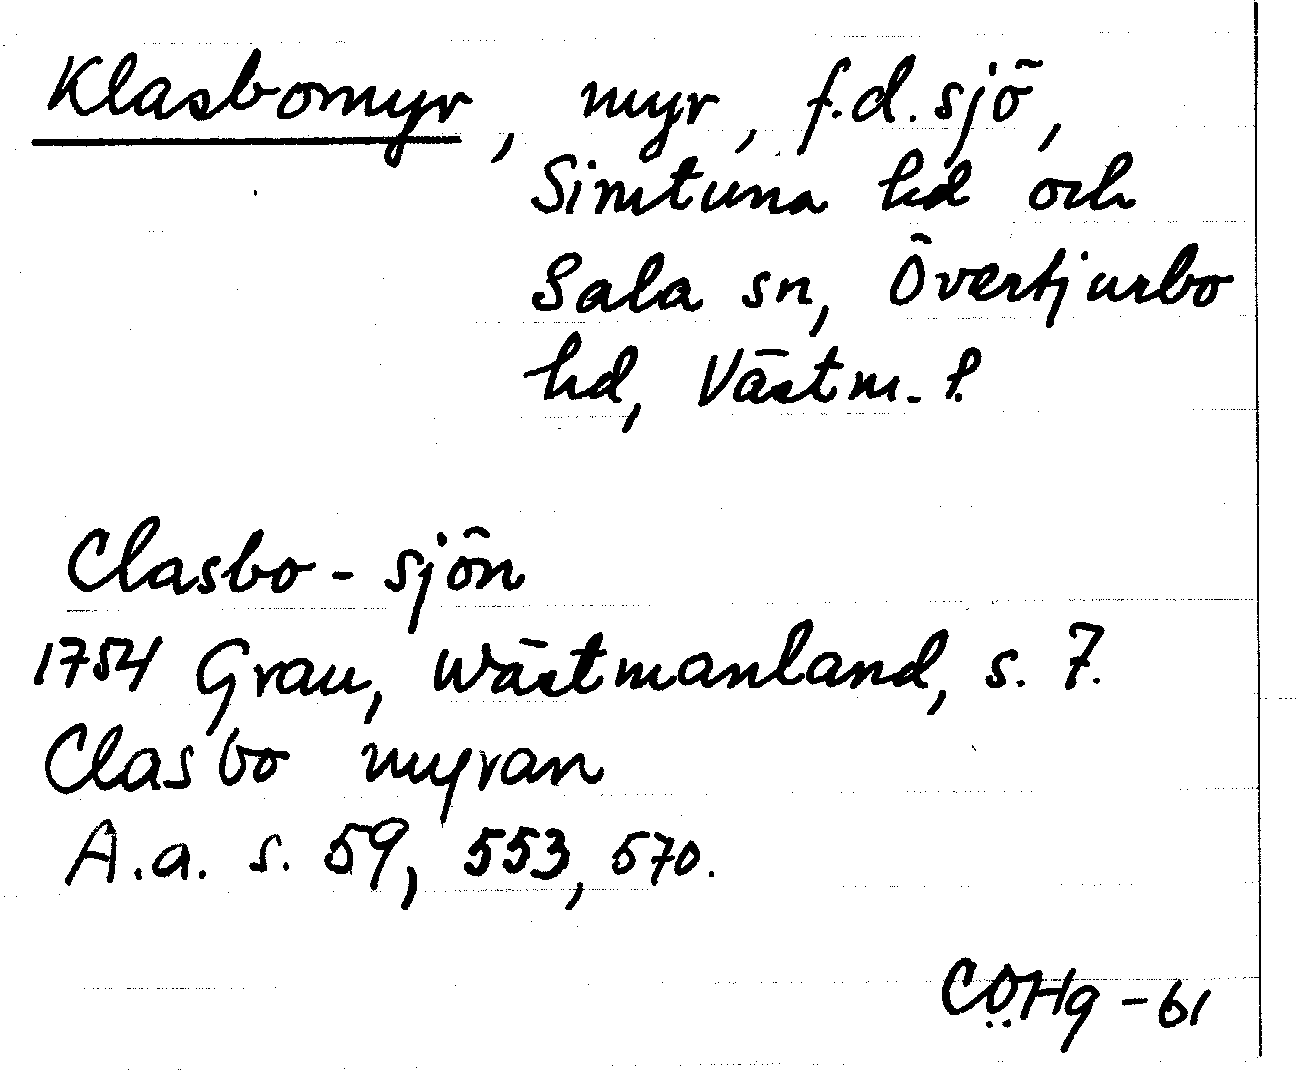 Klasbomyr, myr, f.d. sjö,
Simtuna hd och
Sala sn, Övertjurbo
hd, Västm. l.
Clasbo-sjön
1754 Grau, Wästmanland, s. 7.
Clasbo myran
A.a. s. 59, 553, 570.
CÖHg-61